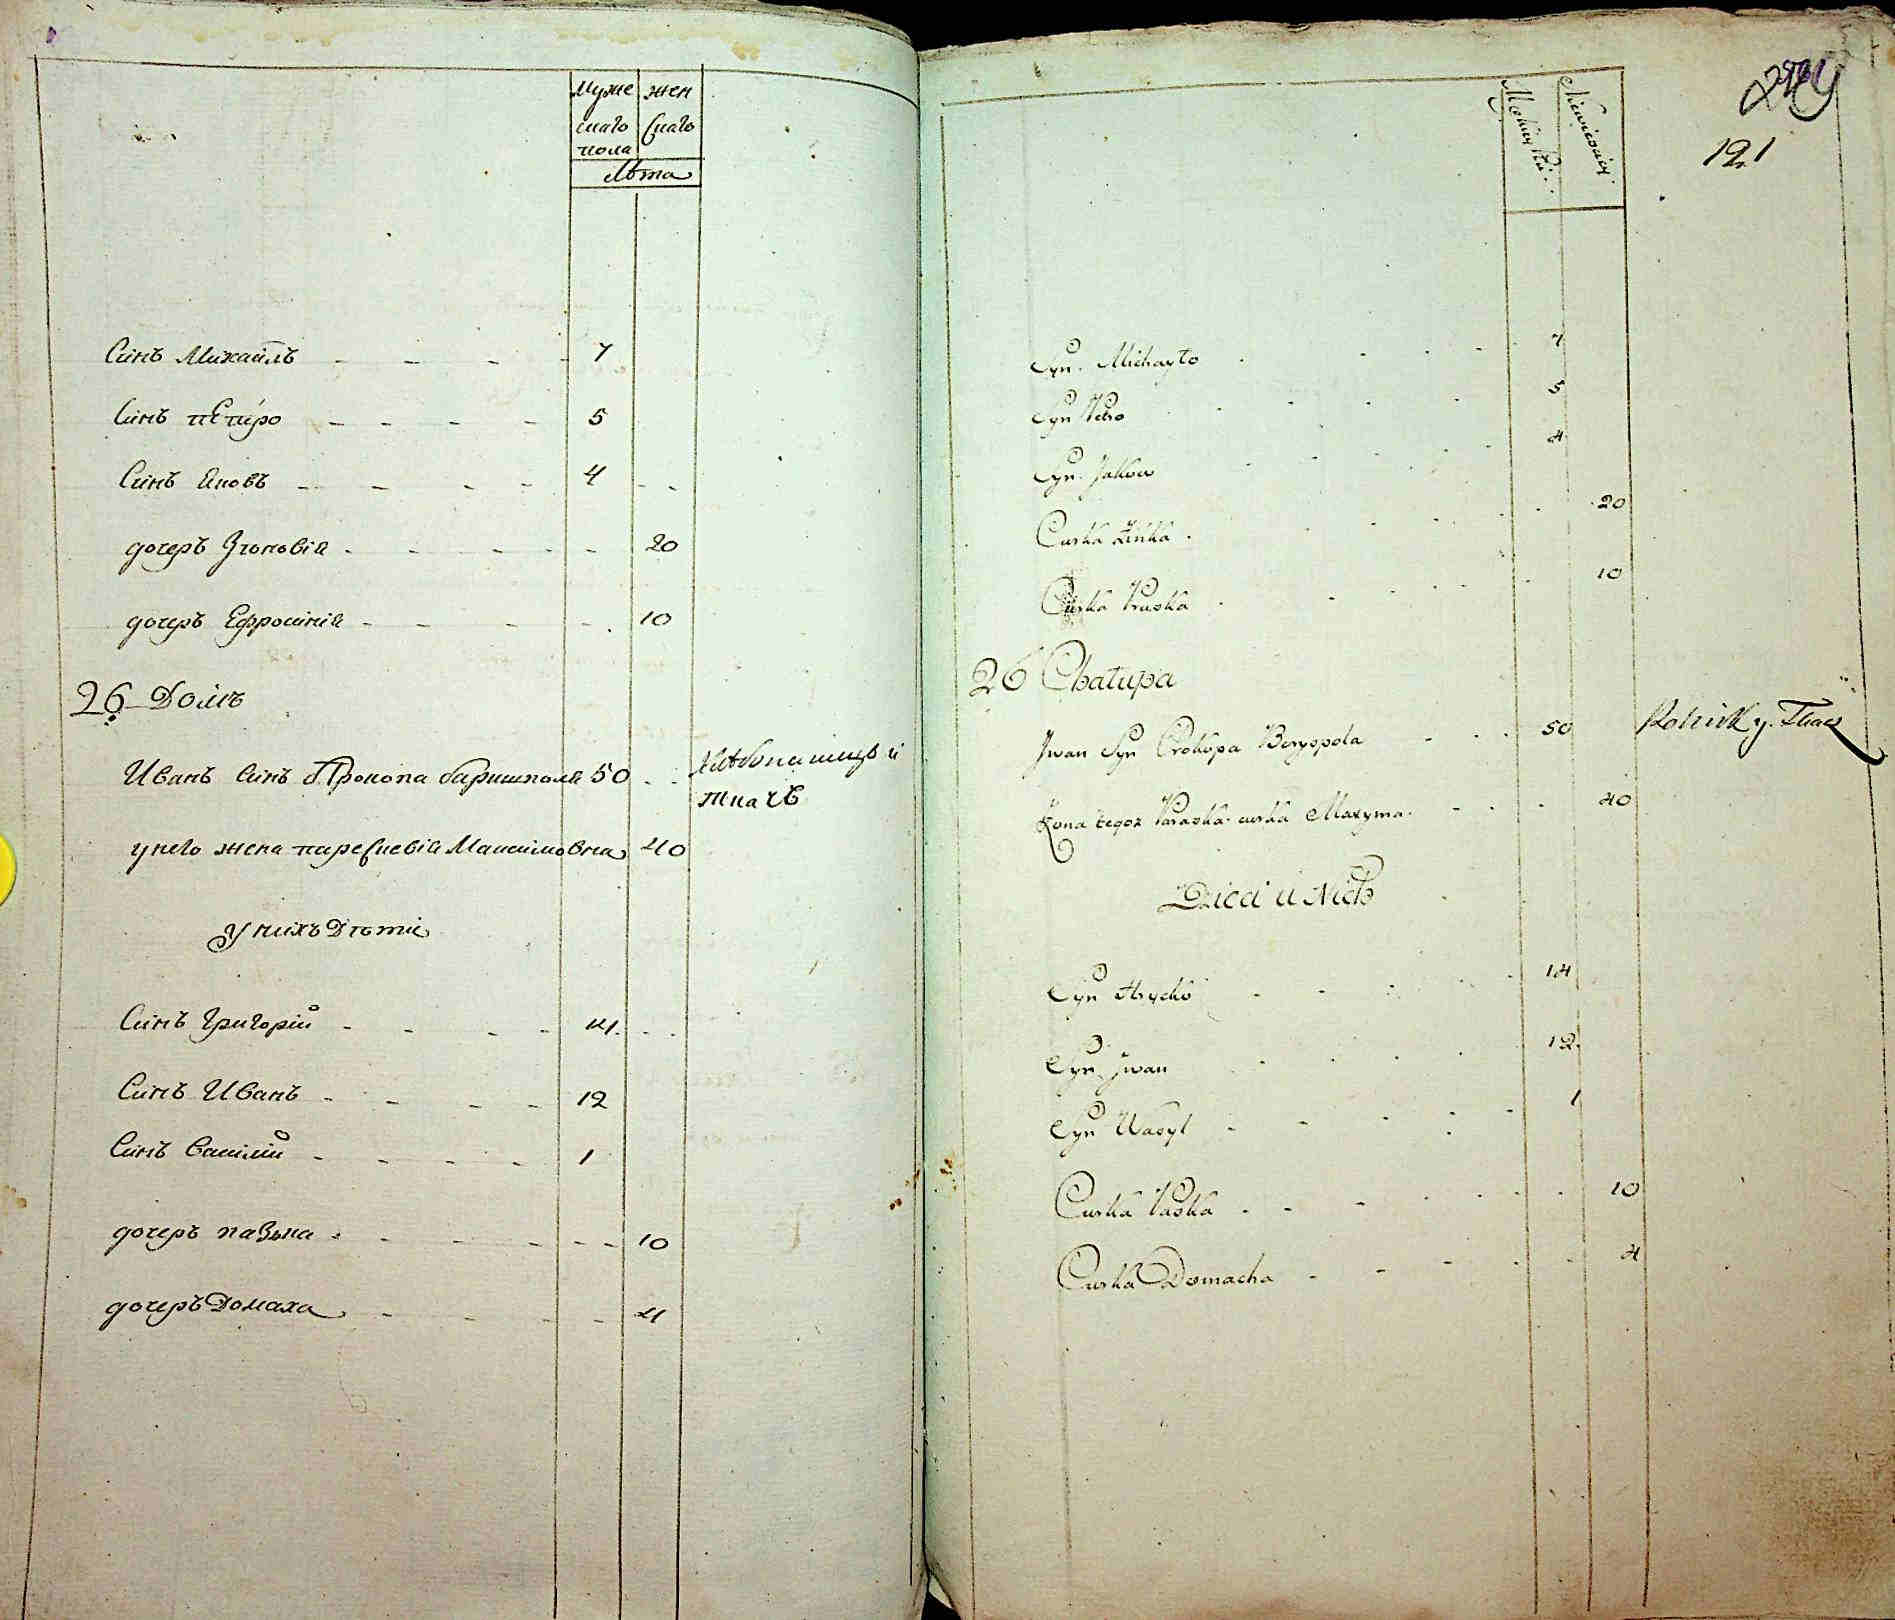 Муже жен
скаго скаго
пола
Лѣта
Синъ Михаилъ - - - - 7
Синъ пЕтро - - - - 5
Синъ Яковъ - - - - 4 - -
дочеръ Зѣновія - - - - - 20
дочеръ Ефросинія - - - - 10
26 Домъ
Иванъ Синъ Прокопа баришпола 50 - - Хлѣбопашецъ и
ткачъ
у него жена параскевія Максимовна 40
у нихъ Дѣти
Синъ Григорій - - - - 14 - -
Синъ Иванъ - - - - 12
Синъ Василій - - - - 1
дочеръ павзна - - - - - - 10
дочеръ Домаха - - - - 4
121
Syn Michayło - - - - 7
Syn Petro - - - - 5
Syn Jakow - - - - 4
Curka Zinka - - - - 20
Curka Pruska - - - - 10
26 Chałupa
Jwan Syn Prokopa Boryspola - - - 50 Rolnik y Tkacz
Żona tegoż Paraska curka Maxyma - - - 40
Dzieci u Nich
Syn Hrycko - - - - 14
Syn Jwan - - - - 12
Syn Wasyl - - - - 1
Curka Paska - - - - 10
Curka Domacha - - - - 4